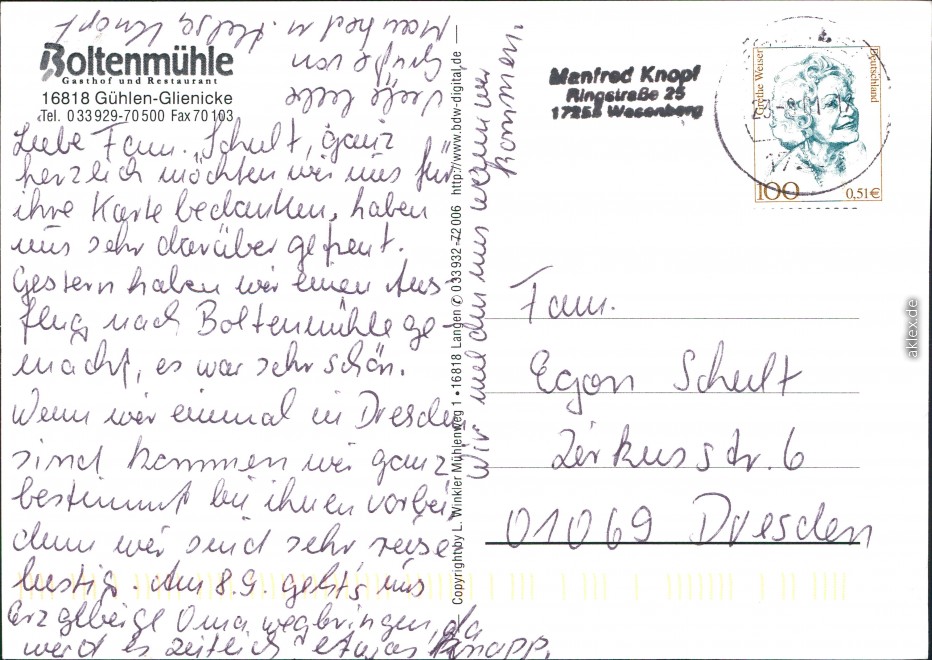 Boltenmühle
Gasthof und Restaurant
16818 Gühlen-Glienicke
Tel. 033929-70500 Fax 70103
Liebe Fam. Schult, ganz
herzlich möchten wir uns für
ihre Karte bedanken, haben
uns sehr darüber gefreut.
Gestern haben wir einen Aus-
flug nach Boltenmühle ge-
macht, es war sehr schön.
Wenn wir einmal in Dresden
sind kommen wir ganz
bestimmt bei ihnen vorbei,
denn wir sind sehr reise
lustig. Am 8.9. geht's ins
Erzgebirge Oma wegbringen, da
wird es zeitlich etwas knapp.
Wir melden uns wenn wir
kommen.
Viele liebe
Grüße von
Manfred u. Ilse Knopf
Copyright by L. Winkler Mühlenweg 1 • 16818 Langen ✆ 033932-72006 http://www.bdw-digital.de
Manfred Knopf
Ringstraße 25
17255 Wesenberg
Grethe Weiser
Deutschland
100
0,51€
Fam.
Egon Schult
Zirkusstr. 6
01069 Dresden
aklex.de